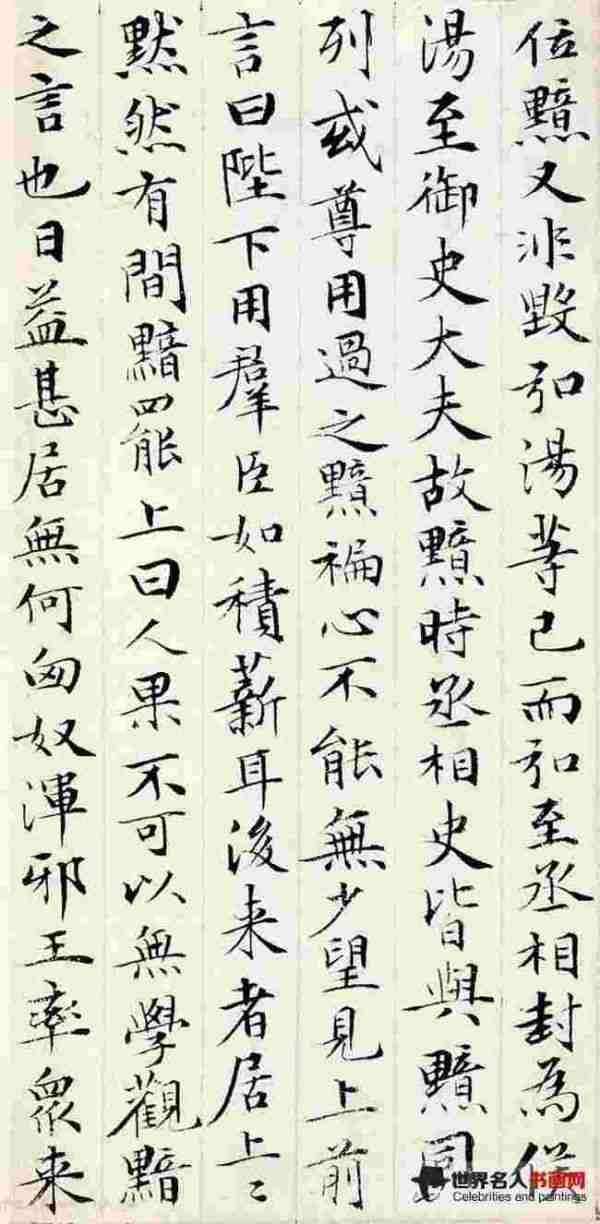 位黯又非毀弘湯等已而弘至丞相封為侯
湯至御史大夫故黯時丞相史皆與黯同
列或尊用過之黯褊心不能無少望見上前
言曰陛下用羣臣如積薪耳後来者居上〻
默然有間黯罷上曰人果不可以無學觀黯
之言也日益甚居無何匈奴渾邪王率眾来
世界名人书画网
Celebrities and paintings